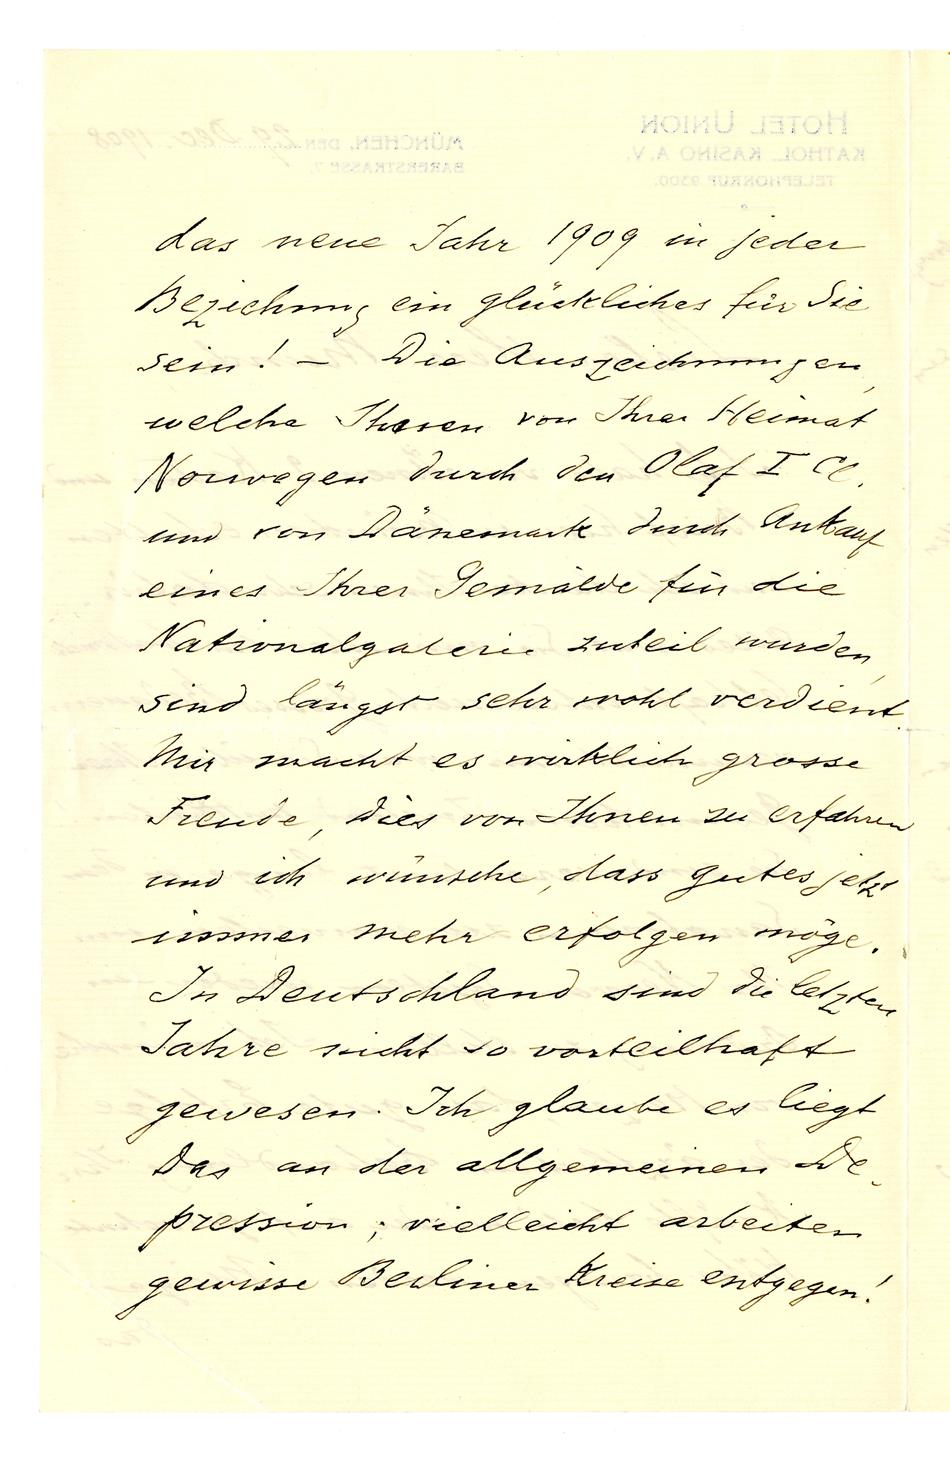 das neue Jahr 1909 in jeder
Beziehung ein glückliches für Sie
sein! — Die Auszeichnungen,
welche Ihnen von Ihrer Heimat
Norwegen durch den Olaf I Cl.
und von Dänemark durch Ankauf
eines Ihrer Gemälde für die
Nationalgalerie zuteil wurden,
sind längst sehr wohl verdient.
Mir macht es wirklich grosse
Freude, dies von Ihnen zu erfahren
und ich wünsche, dass gutes jetzt
immer mehr erfolgen möge.
In Deutschland sind die letzten
Jahre nicht so vorteilhaft
gewesen. Ich glaube es liegt
das an der allgemeinen De-
pression; vielleicht arbeiten
gewisse Berliner Kreise entgegen!
HOTEL UNION
KATHOL. KASINO A.V.
TELEPHONRUF 9300.
MÜNCHEN, DEN 29 Dec. 1908
BARERSTRASSE 7.